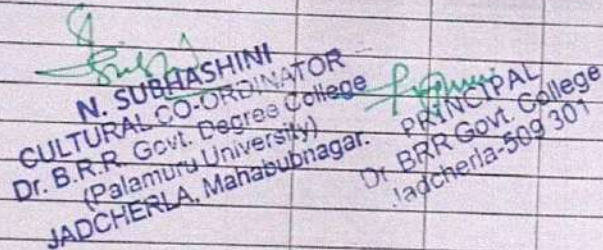 N. SUBHASHINI
CULTURAL CO-ORDINATOR
Dr. B.R.R. Govt. Degree College
(Palamuru University)
JADCHERLA, Mahabubnagar.
PRINCIPAL
Dr BRR Govt. College
Jadcherla-509 301